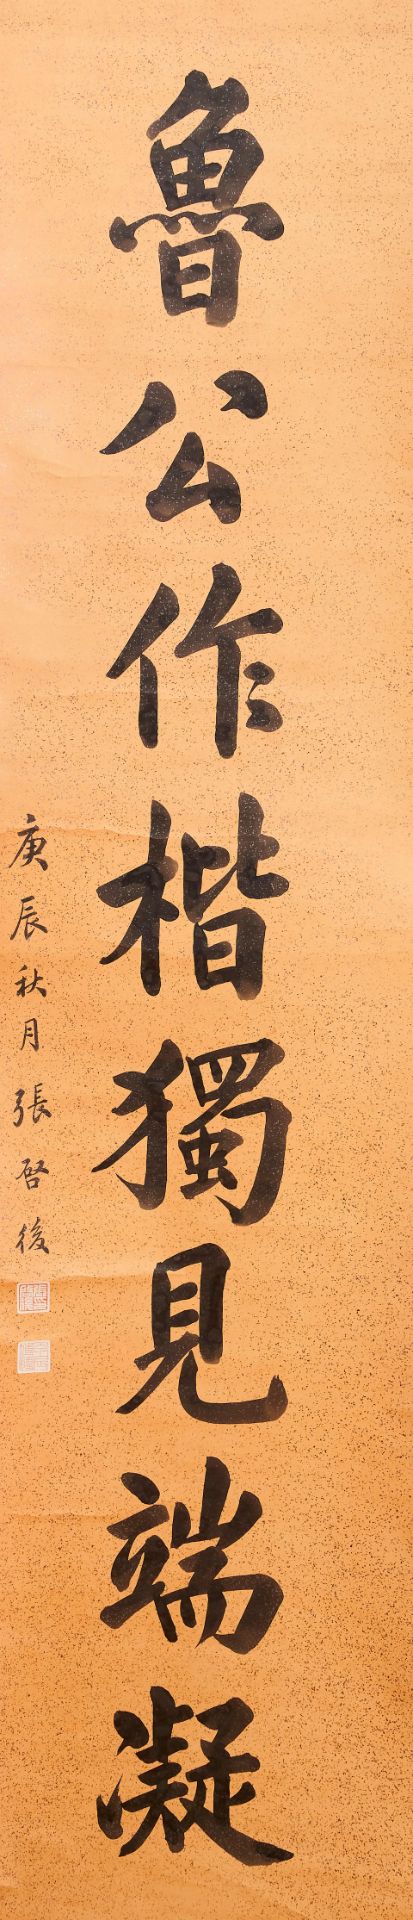 魯公作楷獨見端凝
庚辰秋月張啓後